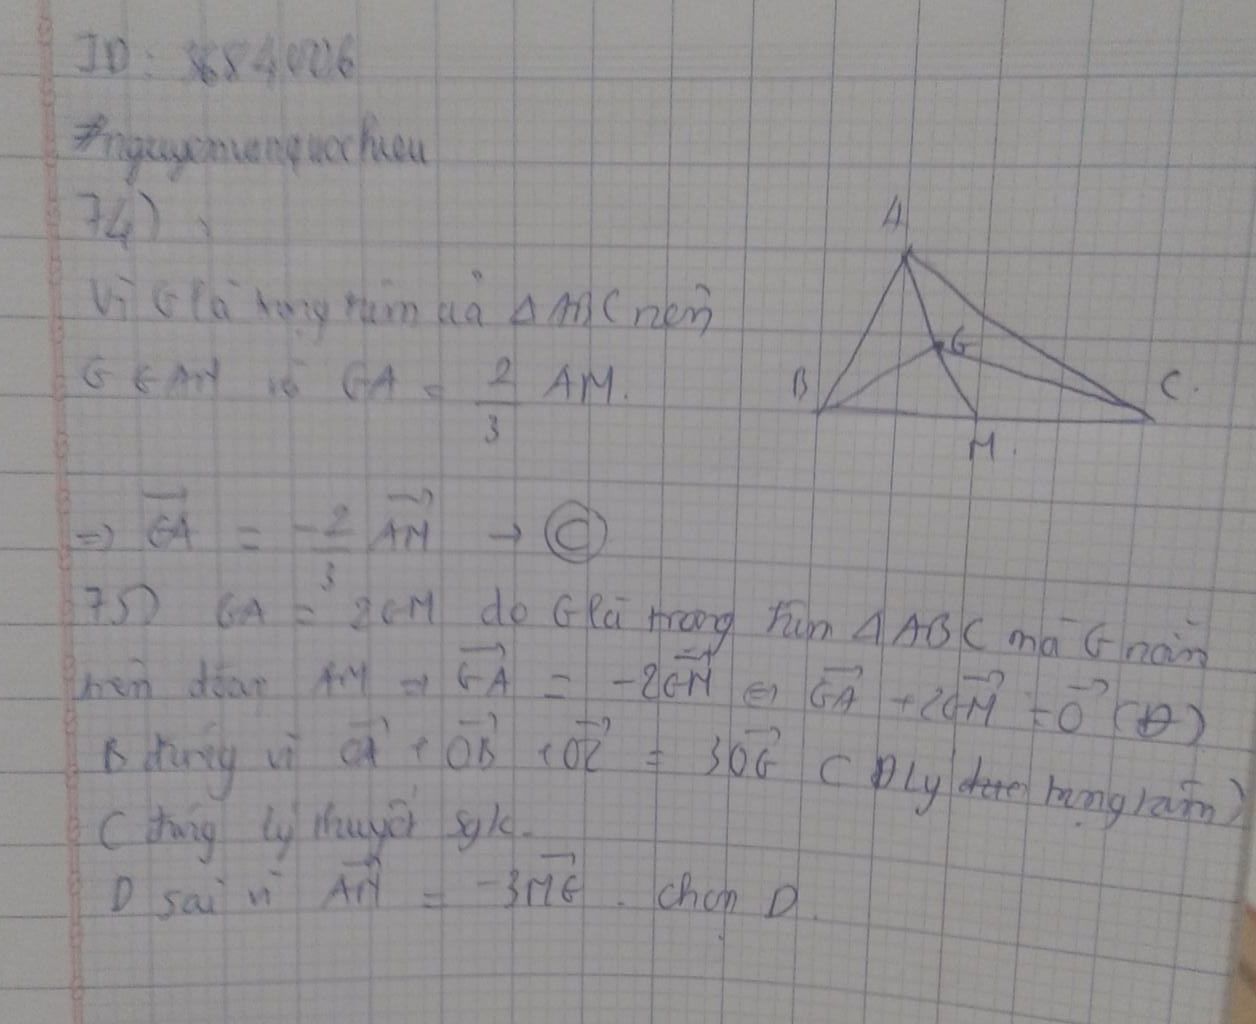 ID: 3684006
74)
Vì G là trọng tâm của Δ ABC nên
G ∈ AM và GA = 2/3 AM.
A
B
G
C.
M.
⇒ GA = -2/3 AM → C
75) GA = 2GM do G là trọng tâm Δ ABC mà G nằm
trên đoạn AM ⇒ GA = -2GM ⇔ GA + 2GM = 0 (Đ)
B đúng vì OA + OB + OC = 3OG (Đ lý trọng tâm)
C đúng lý thuyết sgk.
D sai vì AM = -3MG. chọn D.